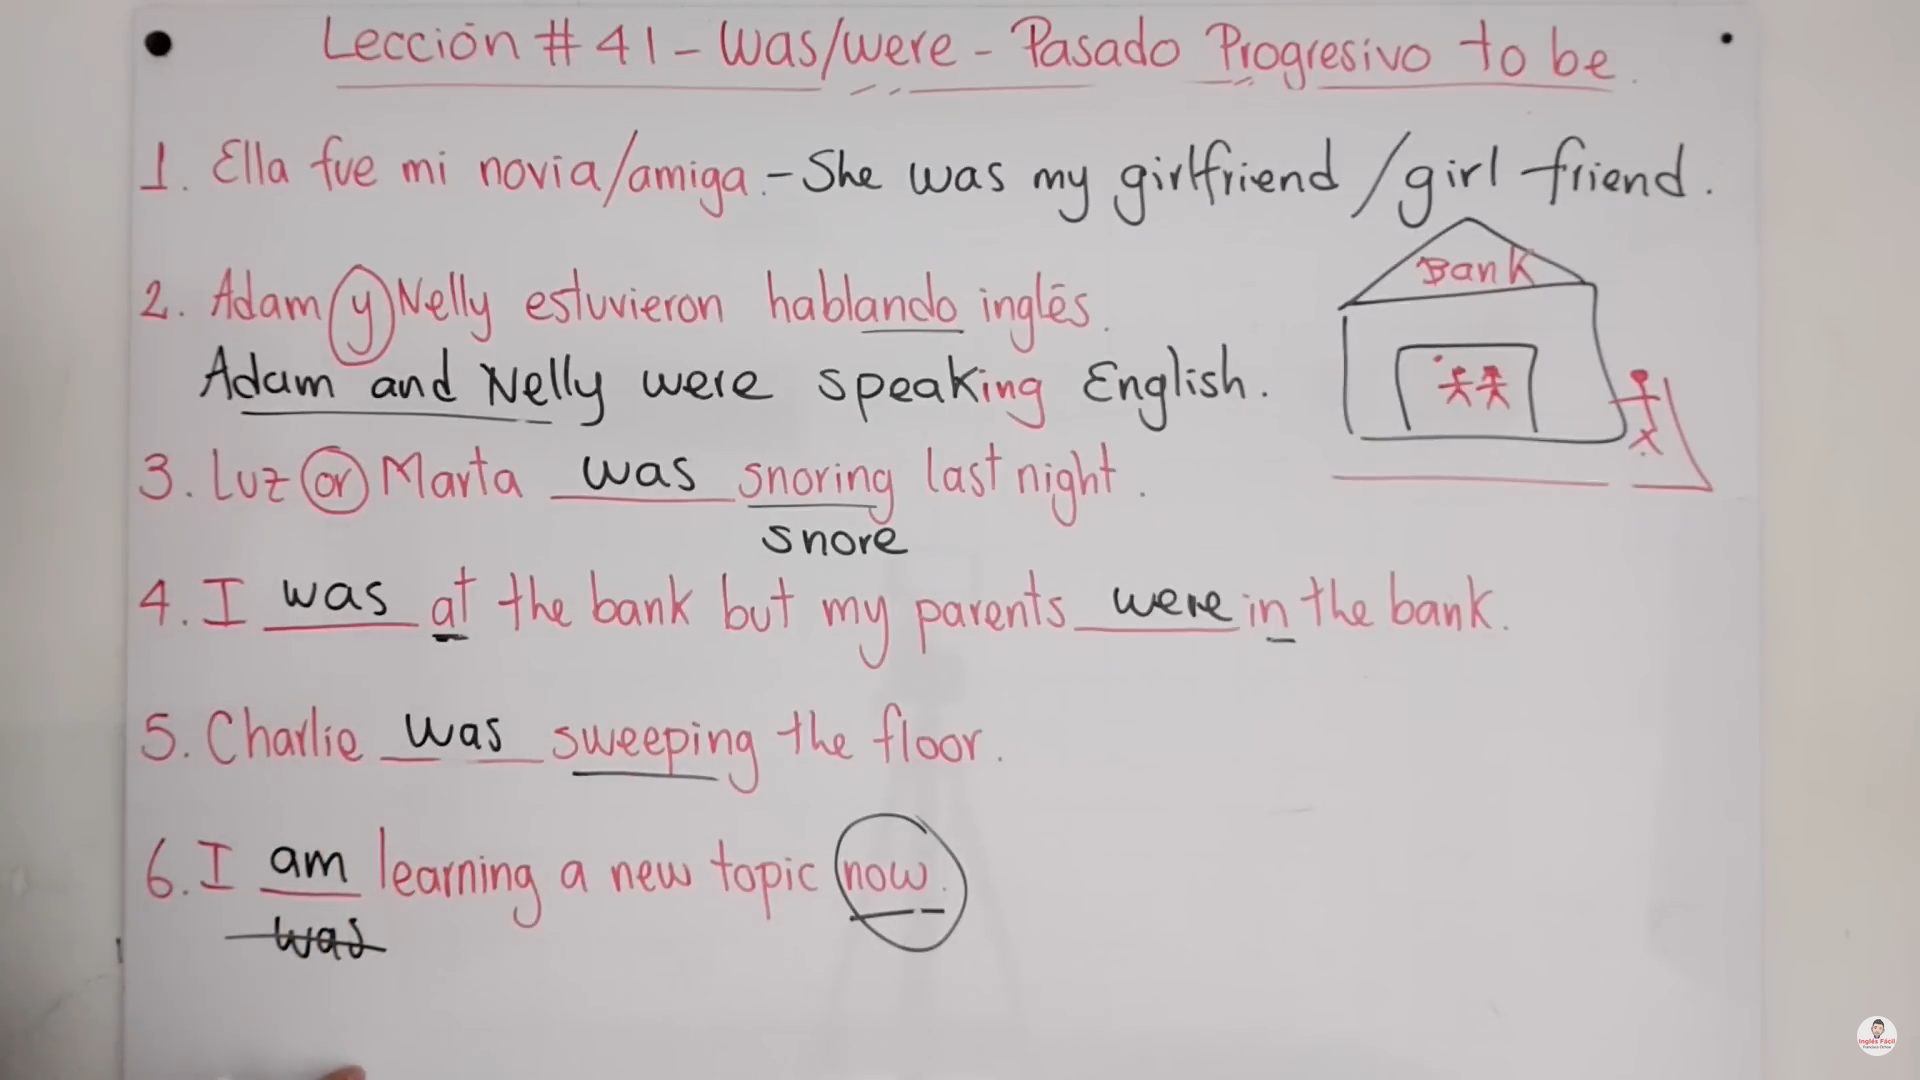 Lección # 41 - Was/were - Pasado Progresivo to be.
1. Ella fue mi novia/amiga. - She was my girlfriend / girl friend.
Bank
2. Adam y Nelly estuvieron hablando inglés.
Adam and Nelly were speaking English.
3. Luz or Marta was snoring last night.
snore
4. I was at the bank but my parents were in the bank.
5. Charlie was sweeping the floor.
6. I am learning a new topic now.
was
Inglés Fácil